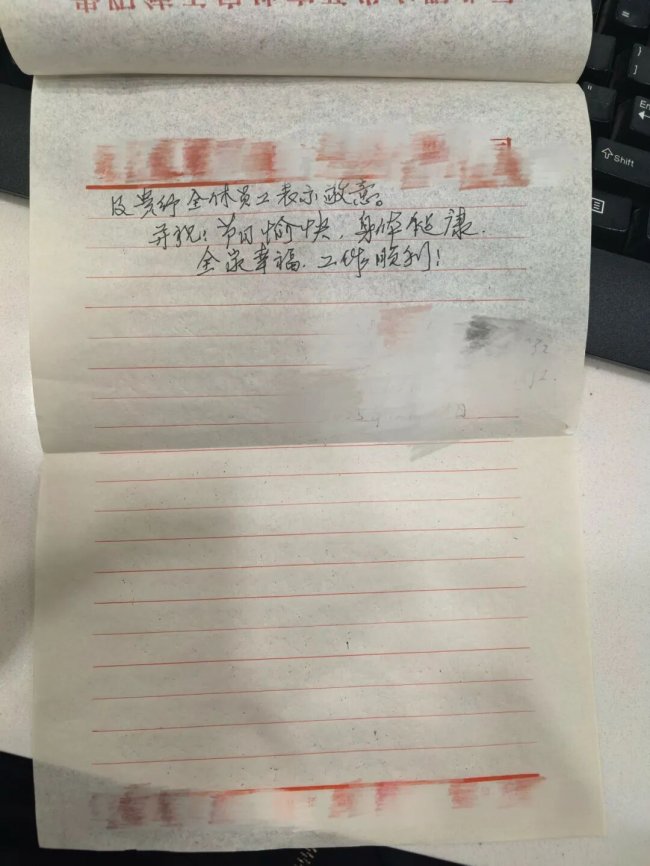 及贵行全体员工表示敬意。
并祝：节日愉快，身体健康，
全家幸福，工作顺利！
Shift